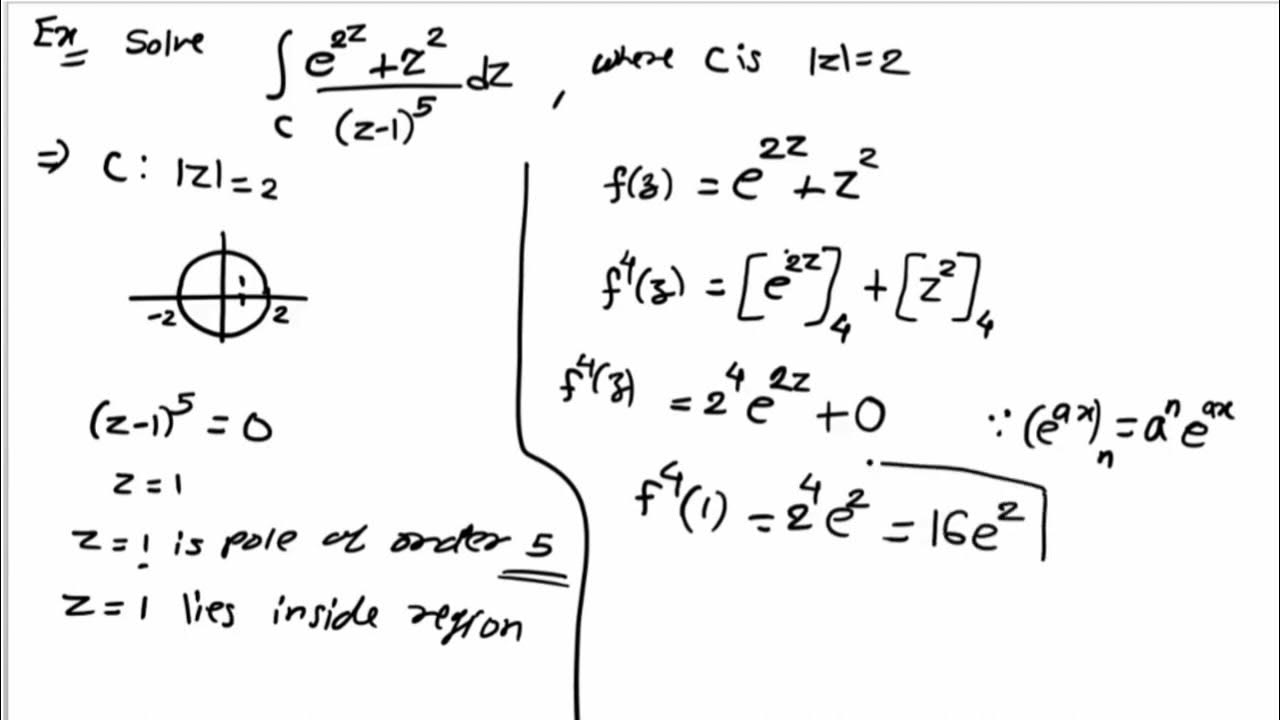 Ex Solve ∫_C (e^{2z} + z^2)/(z-1)^5 dz , where C is |z| = 2
⇒ C : |z| = 2
-2 1 2
(z-1)^5 = 0
z = 1
z = 1 is pole of order 5
z = 1 lies inside region
f(z) = e^{2z} + z^2
f^4(z) = [e^{2z}]_4 + [z^2]_4
f^4(z) = 2^4 e^{2z} + 0 ∵ (e^{ax})_n = a^n e^{ax}
f^4(1) = 2^4 e^2 = 16e^2